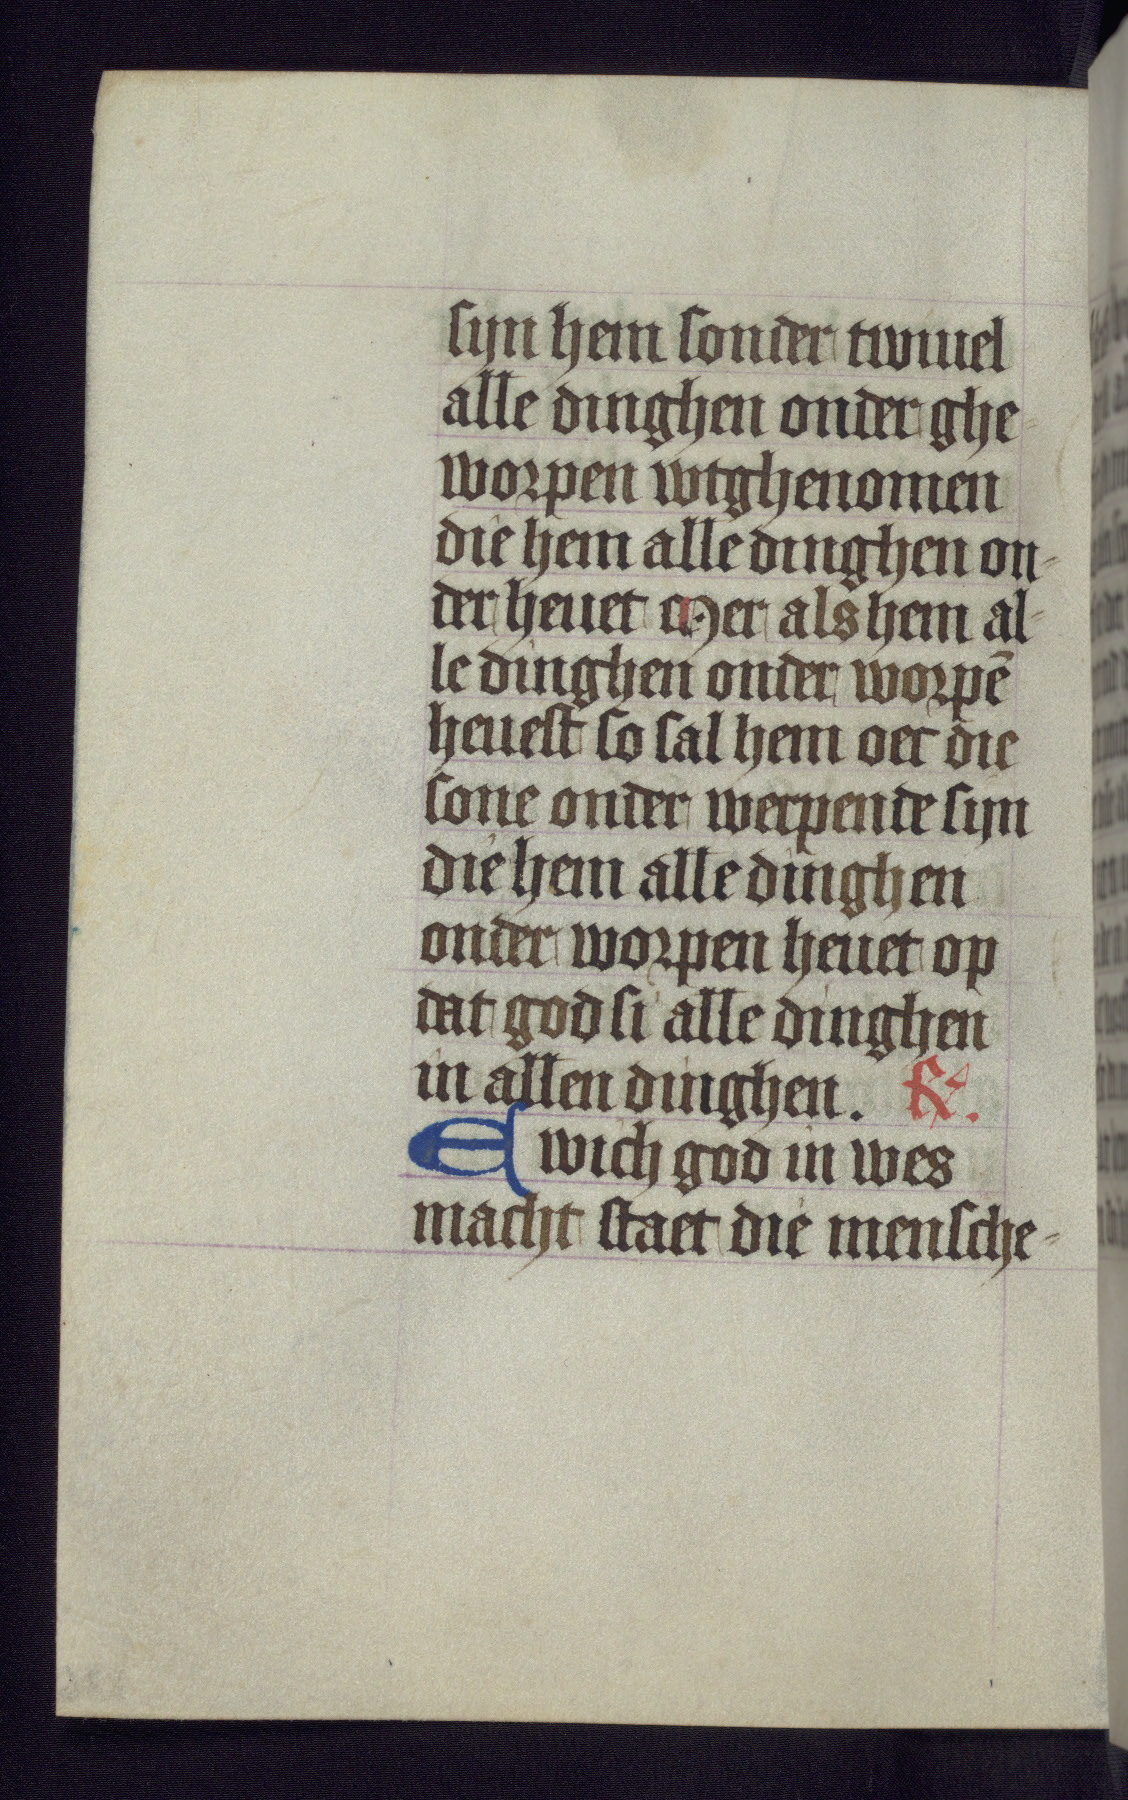 sijn hem sonder twiuel
alle dinghen onder ghe-
worpen wtghenomen
die hem alle dinghen on-
der heuet Mer als hem al-
le dinghen onder worpē
heuest so sal hem oec die
sone onder werpende sijn
die hem alle dinghen
onder worpen heuet op
dat god si alle dinghen
in allen dinghen. R.
Ewich god in wes
macht staet die mensche-